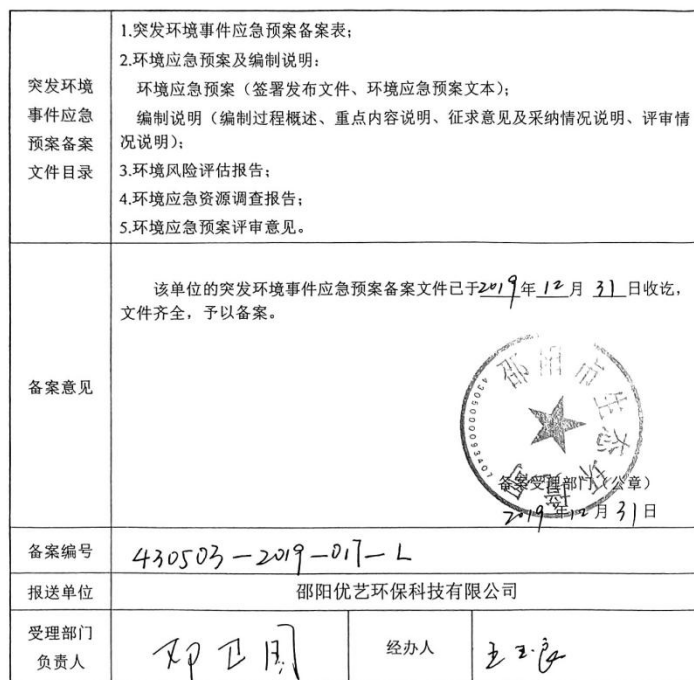 突发环境
事件应急
预案备案
文件目录
1.突发环境事件应急预案备案表；
2.环境应急预案及编制说明：
环境应急预案（签署发布文件、环境应急预案文本）；
编制说明（编制过程概述、重点内容说明、征求意见及采纳情况说明、评审情
况说明）；
3.环境风险评估报告；
4.环境应急资源调查报告；
5.环境应急预案评审意见。
备案意见
该单位的突发环境事件应急预案备案文件已于2019年12月31日收讫，
文件齐全，予以备案。
邵阳市生态环境局
4305000063407
备案受理部门（公章）
2019年12月31日
备案编号
430503-2019-017-L
报送单位
邵阳优艺环保科技有限公司
受理部门
负责人
经办人